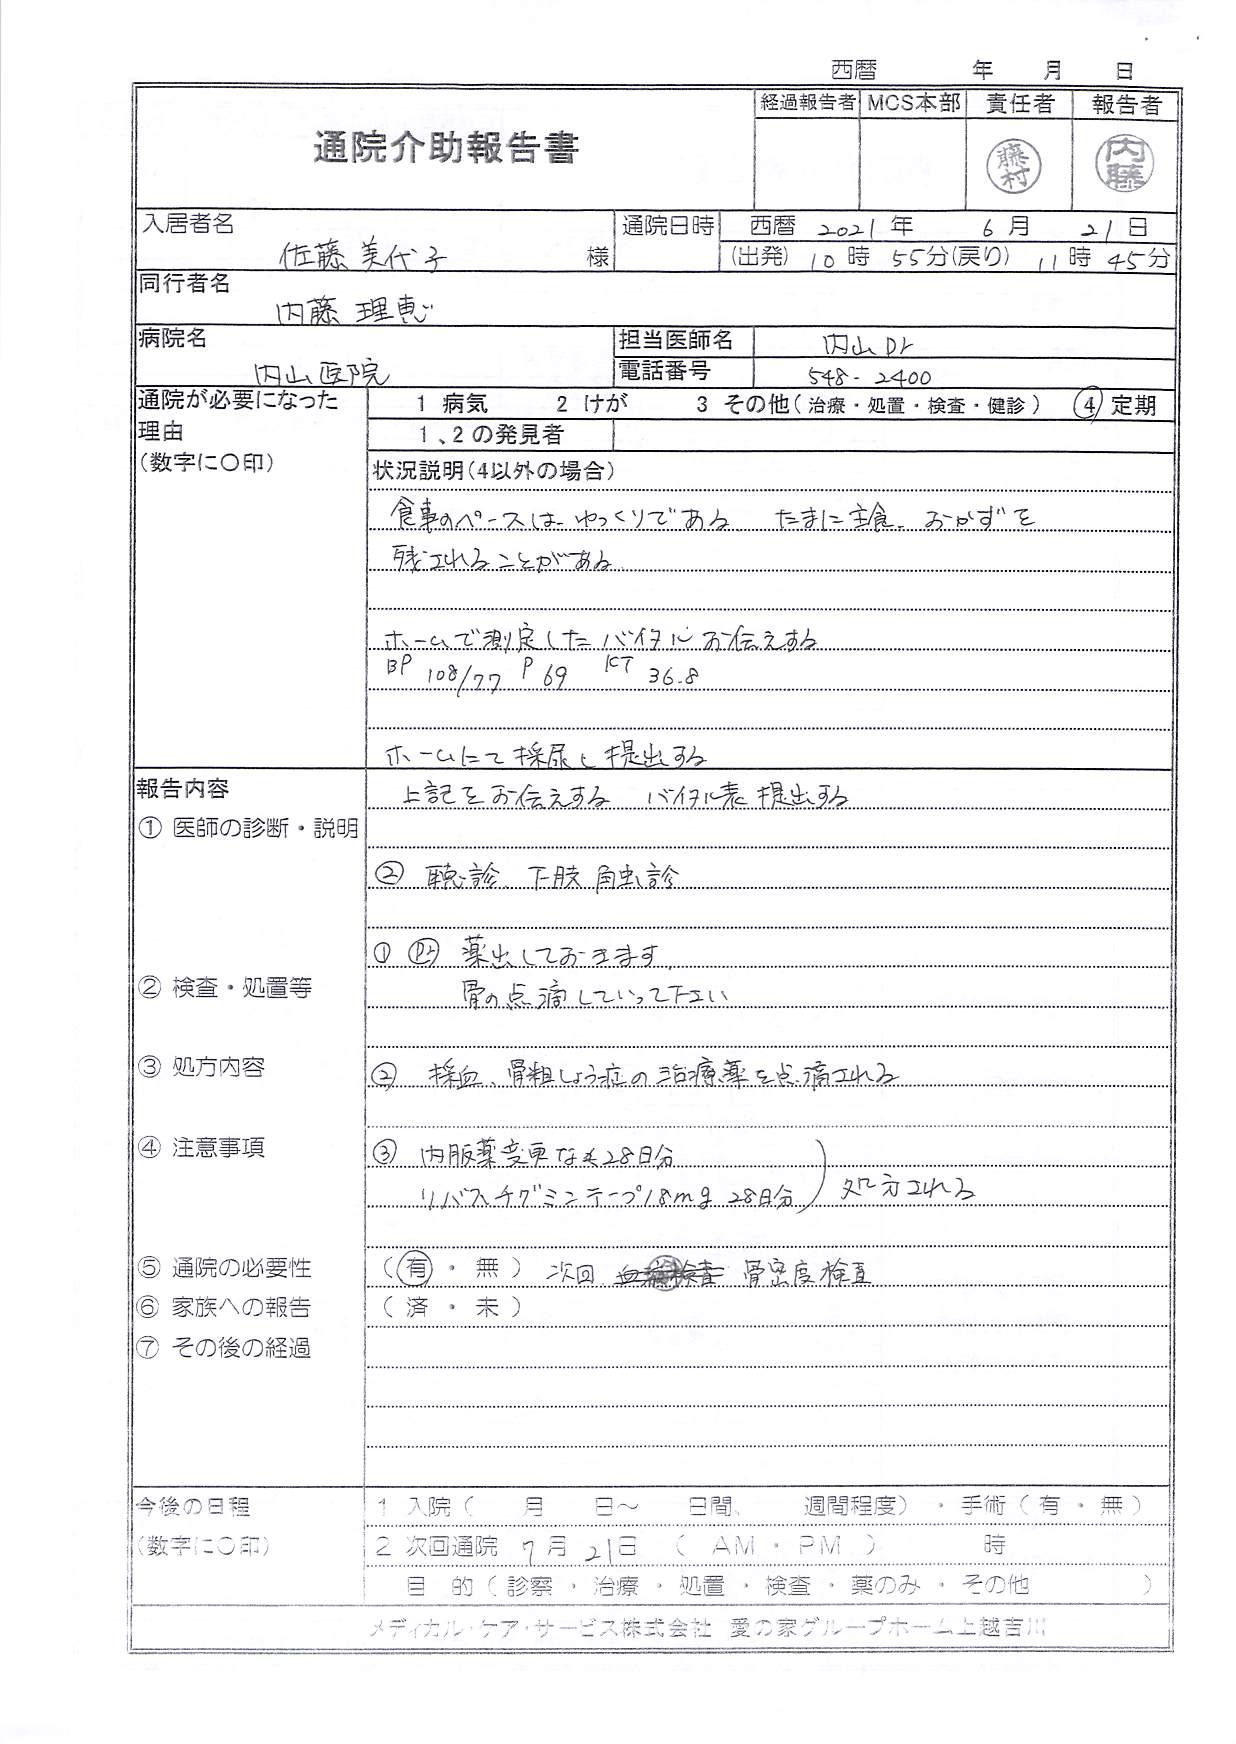 西暦 年 月 日
通院介助報告書
経過報告者 MCS本部 責任者 報告者
藤村 内藤
入居者名 佐藤美代子 様
通院日時 西暦 2021年 6月 21日
(出発) 10時 55分(戻り) 11時 45分
同行者名
内藤 理恵
病院名 内山医院
担当医師名 内山Dr
電話番号 548-2400
通院が必要になった理由
(数字に〇印)
1 病気 2 けが 3 その他(治療・処置・検査・健診) ④ 定期
1、2の発見者
状況説明(4以外の場合)
食事のペースはゆっくりである たまに主食、おかずを
残されることがある
ホームで測定したバイタルお伝えする
BP 108/77 P 69 KT 36.8
ホームにて採尿し提出する
報告内容
上記をお伝えする バイタル表提出する
① 医師の診断・説明
② 聴診、下肢触診
① Dr 薬出しておきます
② 検査・処置等
骨の点滴していって下さい
③ 処方内容
② 採血、骨粗しょう症の治療薬を点滴される
④ 注意事項
③ 内服薬変更なく28日分
リバスチグミンテープ18mg 28日分 処方される
⑤ 通院の必要性 (有・無) 次回 骨密度検査
⑥ 家族への報告 (済・未)
⑦ その後の経過
今後の日程
(数字に〇印)
1 入院( 月 日～ 日間、 週間程度)・手術(有・無)
2 次回通院 7月 21日 (AM・PM) 時
目 的(診察・治療・処置・検査・薬のみ・その他 )
メディカル・ケア・サービス株式会社 愛の家グループホーム上越吉川